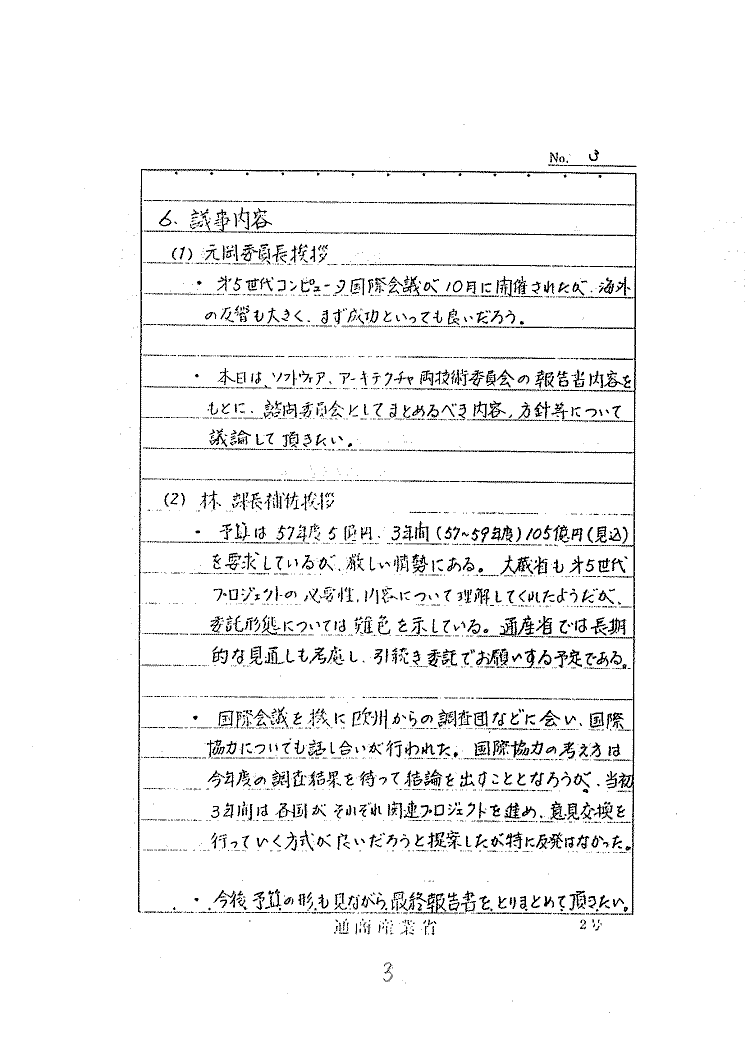 No. 3
6. 議事内容
(1) 元岡委員長挨拶
・ 第5世代コンピュータ国際会議が10月に開催されたが、海外
の反響も大きく、まず成功といっても良いだろう。
・ 本日は、ソフトウェア、アーキテクチャ両技術委員会の報告書内容を
もとに、諮問委員会としてまとめるべき内容、方針等について
議論して頂きたい。
(2) 林 課長補佐挨拶
・ 予算は57年度5億円、3年間(57~59年度)105億円(見込)
を要求しているが、厳しい情勢にある。大蔵省も第5世代
プロジェクトの必要性、内容について理解してくれたようだが、
委託形態については難色を示している。通産省では長期
的な見直しも考慮し、引続き委託でお願いする予定である。
・ 国際会議を機に欧州からの調査団などに会い、国際
協力についても話し合いが行われた。国際協力の考え方は
今年度の調査結果を待って結論を出すこととなろうが、当初
3年間は各国がそれぞれ関連プロジェクトを進め、意見交換を
行っていく方式が良いだろうと提案したが特に反発はなかった。
・ 今後、予算の形も見ながら、最終報告書をとりまとめて頂きたい。
通商産業省 2号
3